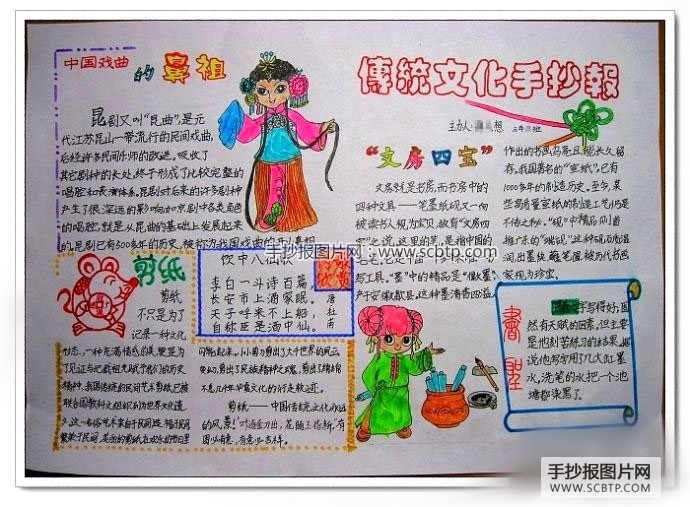 中国戏曲
的鼻祖
昆剧又叫“昆曲”,是元
代江苏昆山一带流行的民间戏曲,
后经许多民间乐师的改进,吸收了
其它剧种的长处,终于形成了比较完整的
唱腔和表演体系。昆剧对后来的许多剧种
产生了很深远的影响,如京剧中各类角色
的唱腔,就是从昆曲的基础上发展起来
的,昆剧已有500多年的历史,被称为我国戏曲的开山鼻祖
傳統文化手抄報
主办人: 想 三年 班
“文房四宝”
文房就是书房,而书房中的
四种文具——笔墨纸砚又一向
被读书人视为宝贝,故有“文房四
宝”之说,这里的笔,是指中国的
写工具。“墨”中的精品是“徽墨”,
产于安徽歙县,这种墨清香四溢,
作出的书画乌亮且能长久留
存。我国著名的“宣纸”,已有
1000多年的制造历史。至今,某
些高质量宣纸的制造工艺仍是
不传之秘。“砚”中精品则首
推广东的“端砚”,这种砚石质温
润,出墨快,蘸笔 ,被历代书画
家视为珍宝。
手抄报图片网:www.scbtp.com
剪纸
剪纸
不只是为了
记录一种文化
形态,一种充满情感的美,更是为
了见证与记载祖先赋予我们的历史
精神,我国传统的民间艺术剪纸,已被
联合国教科文组织列为世界文化遗
产。这一古俗艺术来自于民间,植根于民间
繁荣于民间,美丽的剪纸
饮中八仙歌
李白一斗诗百篇,
长安市上酒家眠。
天子呼来不上船,
自称臣是酒中仙。
诗歌欣赏
唐 杜甫
小小剪刀剪出了大千世界的风云
变幻,剪出了民族精神文魂,剪出了绵绵
不息几千年华夏文化的行走轨迹。
剪纸——中国传统文化永远
的风景!
書聖
字写得好,固
然有天赋的因素,但主要
是他刻苦练习的结果,据
说,他写字用了几大缸墨
水,洗笔的水把一个池
塘都染黑了
手抄报图片网
WWW.SCBTP.COM